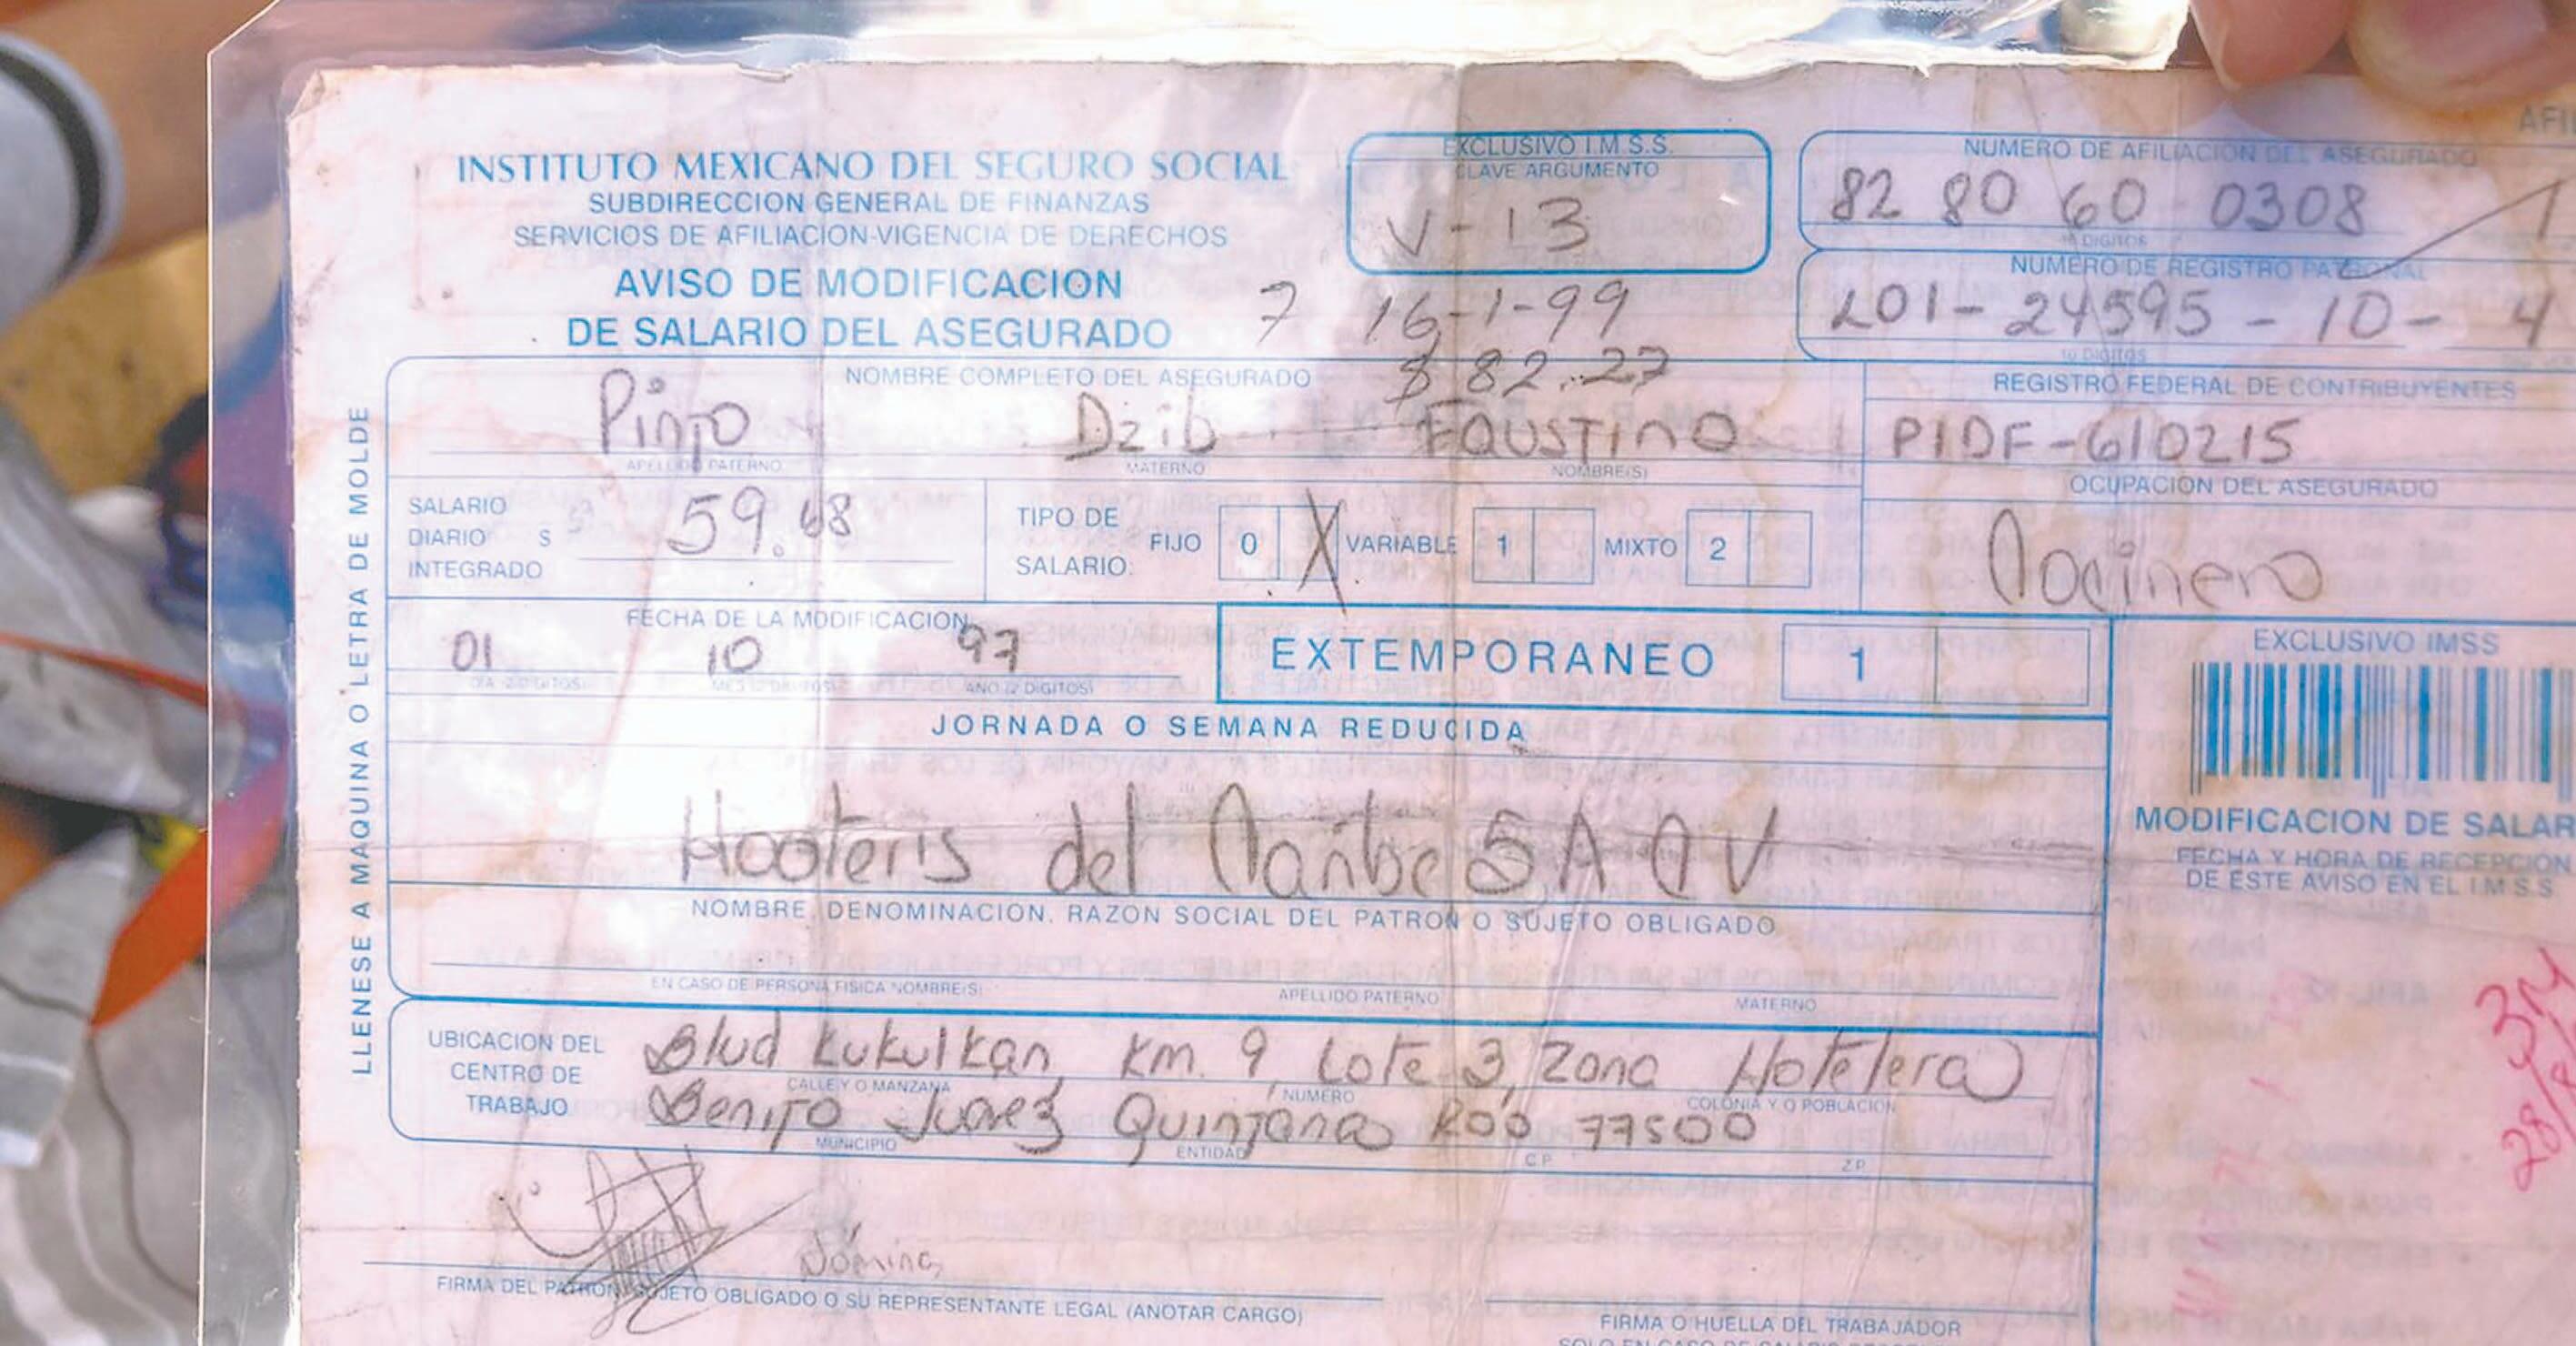 INSTITUTO MEXICANO DEL SEGURO SOCIAL
SUBDIRECCION GENERAL DE FINANZAS
SERVICIOS DE AFILIACION-VIGENCIA DE DERECHOS
AVISO DE MODIFICACION
DE SALARIO DEL ASEGURADO
EXCLUSIVO I.M.S.S.
CLAVE ARGUMENTO
V-13
7 16-1-99
$ 82.27
AFI
NUMERO DE AFILIACION DEL ASEGURADO
82 80 60 0308 1
10 DIGITOS
NUMERO DE REGISTRO PATRONAL
L01-24595-10-4
10 DIGITOS
LLENESE A MAQUINA O LETRA DE MOLDE
NOMBRE COMPLETO DEL ASEGURADO
Pinto Dzib Faustino
APELLIDO PATERNO MATERNO NOMBRE(S)
REGISTRO FEDERAL DE CONTRIBUYENTES
PIDF-610215
SALARIO DIARIO INTEGRADO $ 59.68
TIPO DE SALARIO: FIJO 0 X VARIABLE 1 MIXTO 2
OCUPACION DEL ASEGURADO
Cocinero
FECHA DE LA MODIFICACION
01 10 97
DIA (2 DIGITOS) MES (2 DIGITOS) AÑO (2 DIGITOS)
EXTEMPORANEO 1
EXCLUSIVO IMSS
JORNADA O SEMANA REDUCIDA
MODIFICACION DE SALAR
FECHA Y HORA DE RECEPCION
DE ESTE AVISO EN EL I.M.S.S
Hooteris del Caribe S A C V
NOMBRE, DENOMINACION, RAZON SOCIAL DEL PATRON O SUJETO OBLIGADO
EN CASO DE PERSONA FISICA NOMBRE(S) APELLIDO PATERNO MATERNO
UBICACION DEL CENTRO DE TRABAJO
Blud Kukulkan, Km. 9, Lote 3, Zona Hotelera
CALLE Y O MANZANA NUMERO COLONIA Y O POBLACION
Benito Juarez Quintana Roo 77500
MUNICIPIO ENTIDAD C.P. Z.P.
Nómina
FIRMA DEL PATRON, SUJETO OBLIGADO O SU REPRESENTANTE LEGAL (ANOTAR CARGO)
FIRMA O HUELLA DEL TRABAJADOR